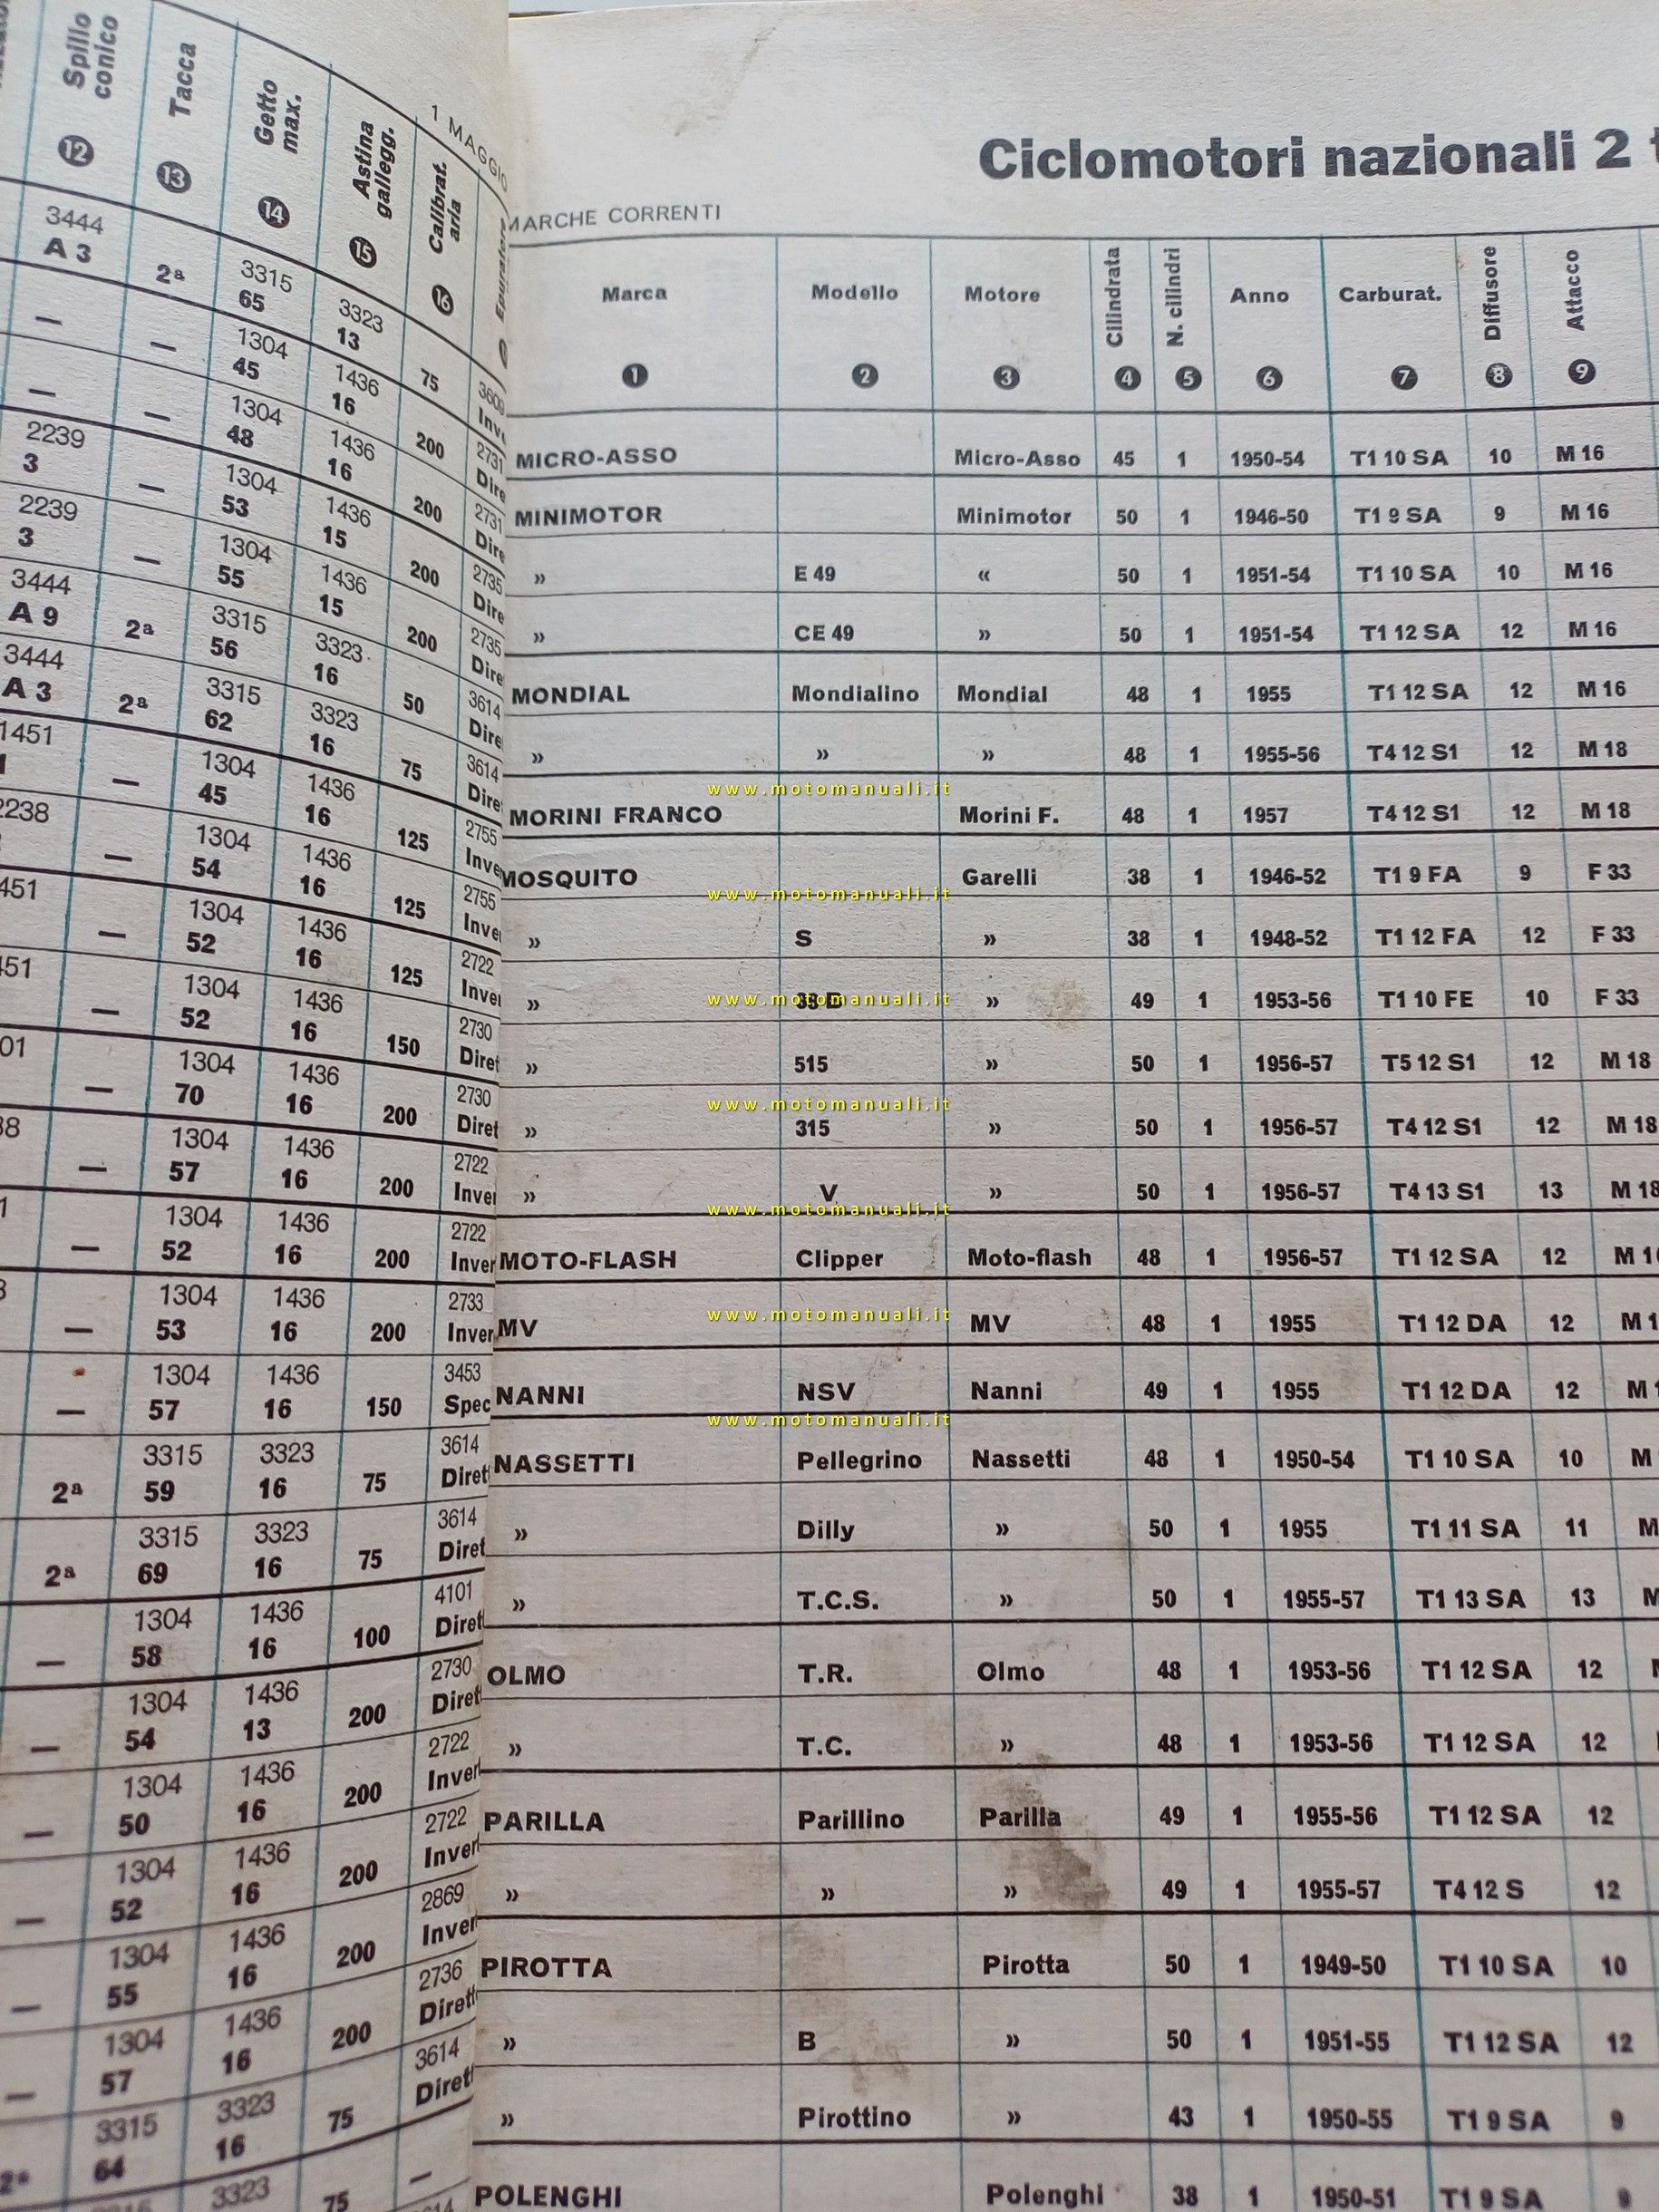 Spillo conico
Tacca
Getto max.
Astina gallegg.
Calibrat. aria
Epuratore
1 MAGGIO
12 13 14 15 16
3444 3315 3323 3609
A 3 2ª 65 13 75 Inv
— — 1304 1436 2731
45 16 200 Dire
— — 1304 1436 2731
48 16 200 Dire
2239 1304 1436 2735
3 — 53 15 200 Dire
2239 1304 1436 2735
3 — 55 15 200 Dire
3444 3315 3323 3614
A 9 2ª 56 16 50 Dire
3444 3315 3323 3614
A 3 2ª 62 16 75 Dire
1451 1304 1436 2755
— 45 16 125 Inve
2238 1304 1436 2755
— 54 16 125 Inve
451 1304 1436 2722
— 52 16 125 Inve
451 1304 1436 2730
— 52 16 150 Diret
01 1304 1436 2730
— 70 16 200 Diret
38 1304 1436 2722
— 57 16 200 Inver
1 1304 1436 2722
— 52 16 200 Inver
1304 1436 2733
— 53 16 200 Inver
1304 1436 3453
— 57 16 150 Spec
3315 3323 3614
2ª 59 16 75 Diret
3315 3323 3614
2ª 69 16 75 Diret
1304 1436 4101
— 58 16 100 Diret
1304 1436 2730
— 54 13 200 Diret
1304 1436 2722
— 50 16 200 Inver
1304 1436 2722
— 52 16 200 Inver
1304 1436 2869
— 55 16 200 Inver
1304 1436 2736
— 57 16 200 Dirett
3315 3323 3614
2ª 64 16 75 Dirett
3323 75 —
Ciclomotori nazionali 2 t
MARCHE CORRENTI
Marca Modello Motore Cilindrata N. cilindri Anno Carburat. Diffusore Attacco
1 2 3 4 5 6 7 8 9
MICRO-ASSO Micro-Asso 45 1 1950-54 T1 10 SA 10 M 16
MINIMOTOR Minimotor 50 1 1946-50 T1 9 SA 9 M 16
» E 49 « 50 1 1951-54 T1 10 SA 10 M 16
» CE 49 » 50 1 1951-54 T1 12 SA 12 M 16
MONDIAL Mondialino Mondial 48 1 1955 T1 12 SA 12 M 16
» » » 48 1 1955-56 T4 12 S1 12 M 18
www.motomanuali.it
MORINI FRANCO Morini F. 48 1 1957 T4 12 S1 12 M 18
MOSQUITO Garelli 38 1 1946-52 T1 9 FA 9 F 33
www.motomanuali.it
» S » 38 1 1948-52 T1 12 FA 12 F 33
» B » 49 1 1953-56 T1 10 FE 10 F 33
www.motomanuali.it
» 515 » 50 1 1956-57 T5 12 S1 12 M 18
www.motomanuali.it
» 315 » 50 1 1956-57 T4 12 S1 12 M 18
» V » 50 1 1956-57 T4 13 S1 13 M 18
www.motomanuali.it
MOTO-FLASH Clipper Moto-flash 48 1 1956-57 T1 12 SA 12 M 1
www.motomanuali.it
MV MV 48 1 1955 T1 12 DA 12 M 1
NANNI NSV Nanni 49 1 1955 T1 12 DA 12 M 1
www.motomanuali.it
NASSETTI Pellegrino Nassetti 48 1 1950-54 T1 10 SA 10 M
» Dilly » 50 1 1955 T1 11 SA 11 M
» T.C.S. » 50 1 1955-57 T1 13 SA 13 M
OLMO T.R. Olmo 48 1 1953-56 T1 12 SA 12
» T.C. » 48 1 1953-56 T1 12 SA 12
PARILLA Parillino Parilla 49 1 1955-56 T1 12 SA 12
» » » 49 1 1955-57 T4 12 S 12
PIROTTA Pirotta 50 1 1949-50 T1 10 SA 10
» B » 50 1 1951-55 T1 12 SA 12
» Pirottino » 43 1 1950-55 T1 9 SA 9
POLENGHI Polenghi 38 1 1950-51 T1 9 SA 9